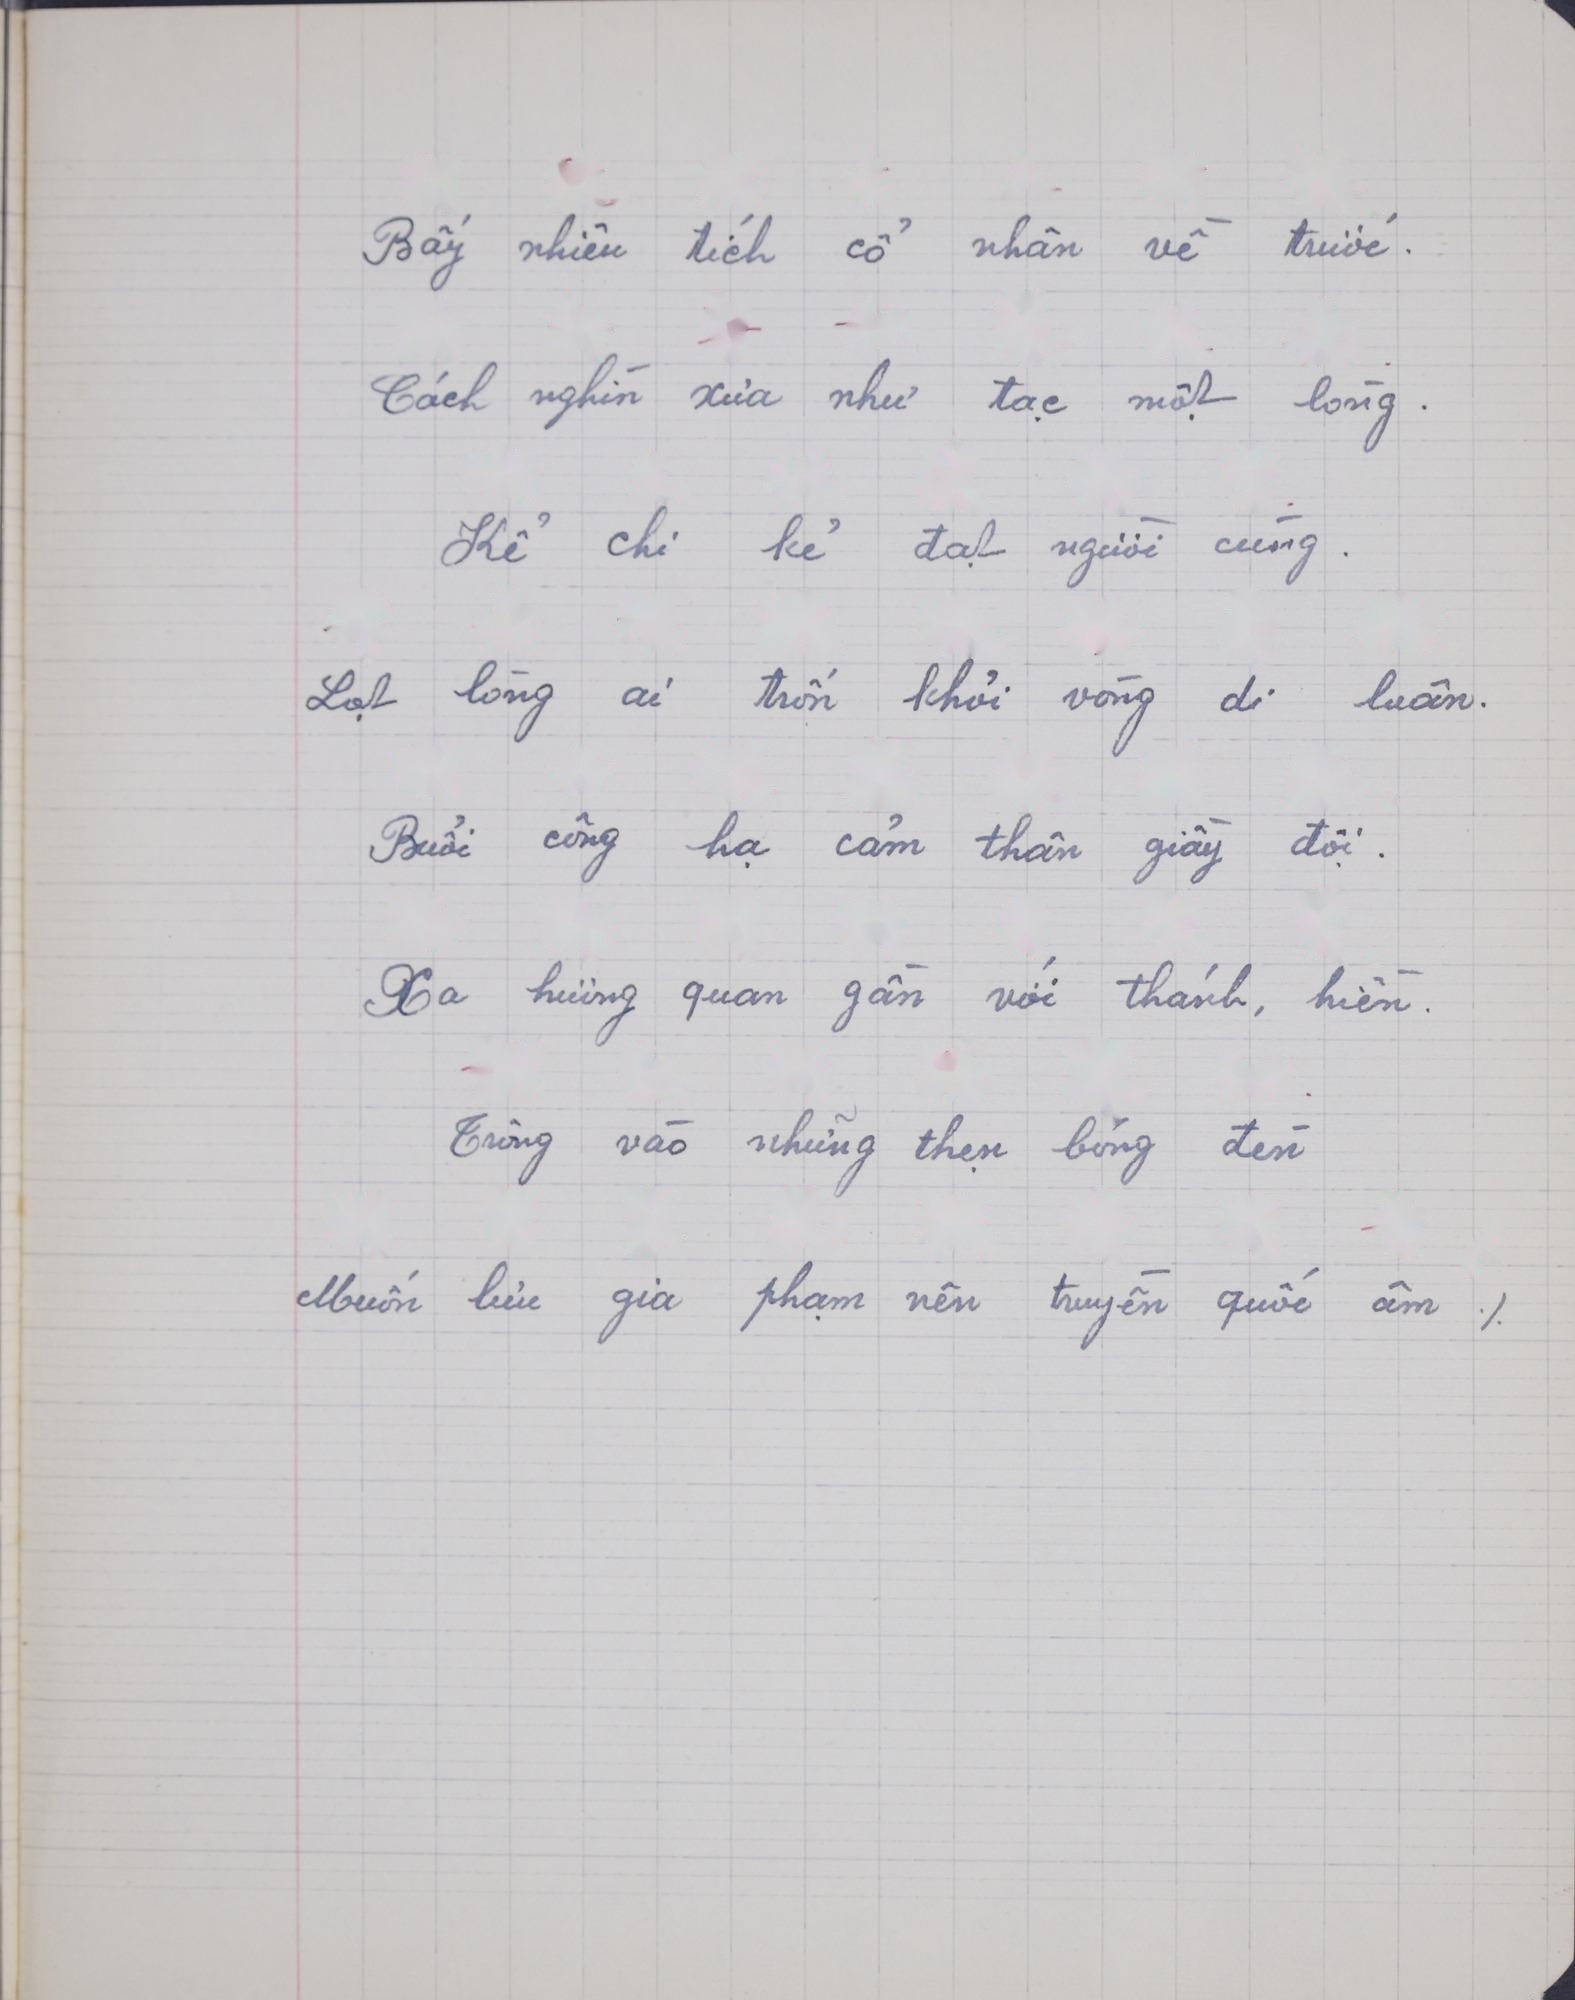 Bấy nhiêu tích cổ nhân về trước.
Cách nghìn xưa như tạc một lòng.
Kể chi kẻ đạt người cùng.
Lọt lòng ai trốn khỏi vòng di luân.
Buổi công hạ cảm thân giầy đội.
Xa hương quan gần với thánh, hiền.
Trông vào những thẹn bóng đèn
Muốn lưu gia phạm nên truyền quốc âm ./.